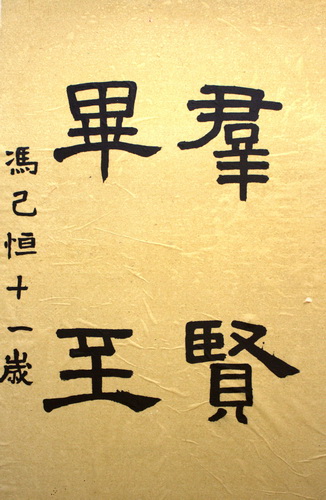 羣賢
畢至
馮己恒十一歲